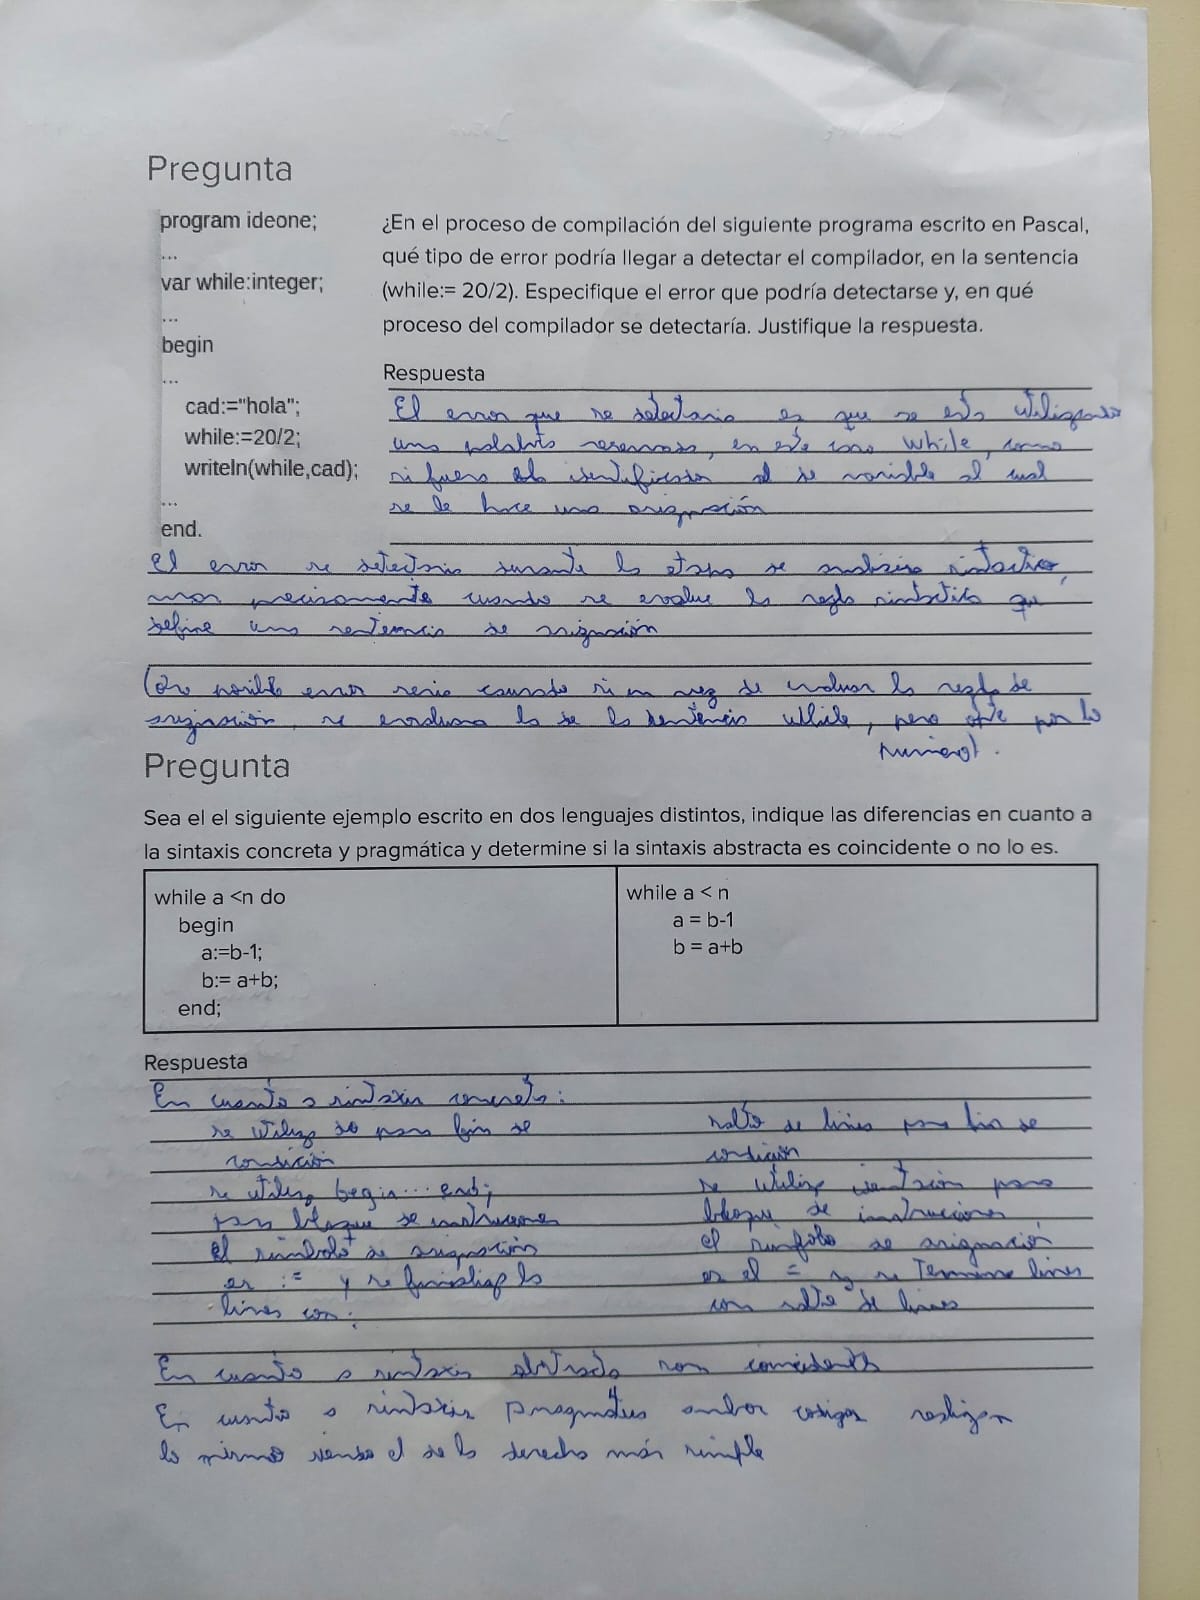 Pregunta
program ideone;
...
var while:integer;
...
begin
...
cad:="hola";
while:=20/2;
writeln(while,cad);
...
end.
¿En el proceso de compilación del siguiente programa escrito en Pascal,
qué tipo de error podría llegar a detectar el compilador, en la sentencia
(while:= 20/2). Especifique el error que podría detectarse y, en qué
proceso del compilador se detectaría. Justifique la respuesta.
Respuesta
El error que se detectaria es que se esta utilizando
una palabra reservada, en este caso While, como
si fuera identificador de variable al cual
se le hace una asignación
El error se detectaria durante la etapa de analisis sintactico,
mas precisamente cuando se evalue la regla sintactica que
define una sentencia de asignación
Otro posible error seria causado si en vez de evaluar la regla de
asignación, se evaluara la de la sentencia While, pero opte por lo
primero).
Pregunta
Sea el el siguiente ejemplo escrito en dos lenguajes distintos, indique las diferencias en cuanto a
la sintaxis concreta y pragmática y determine si la sintaxis abstracta es coincidente o no lo es.
while a <n do
begin
a:=b-1;
b:= a+b;
end;
while a < n
a = b-1
b = a+b
Respuesta
En cuanto a sintaxis concreta:
se utiliza do para fin de
condición
se utiliza begin... end;
para bloque de instrucciones
el simbolo de asignación
es := y se finaliza la
linea con ;
salto de linea para fin de
condición
se utiliza identación para
bloque de instrucciones
el simbolo de asignación
es el = y se termina linea
con salto de linea
En cuanto a sintaxis abstracta son coincidentes
En cuanto a sintaxis pragmatica ambos codigos realizan
lo mismo siendo el de la derecha más simple